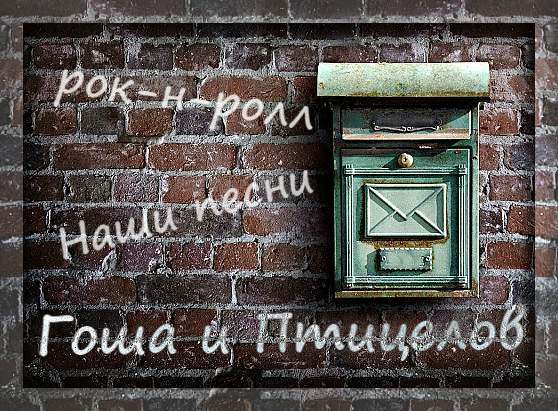 рок-н-ролл
Наши песни
Гоша и Птицелов